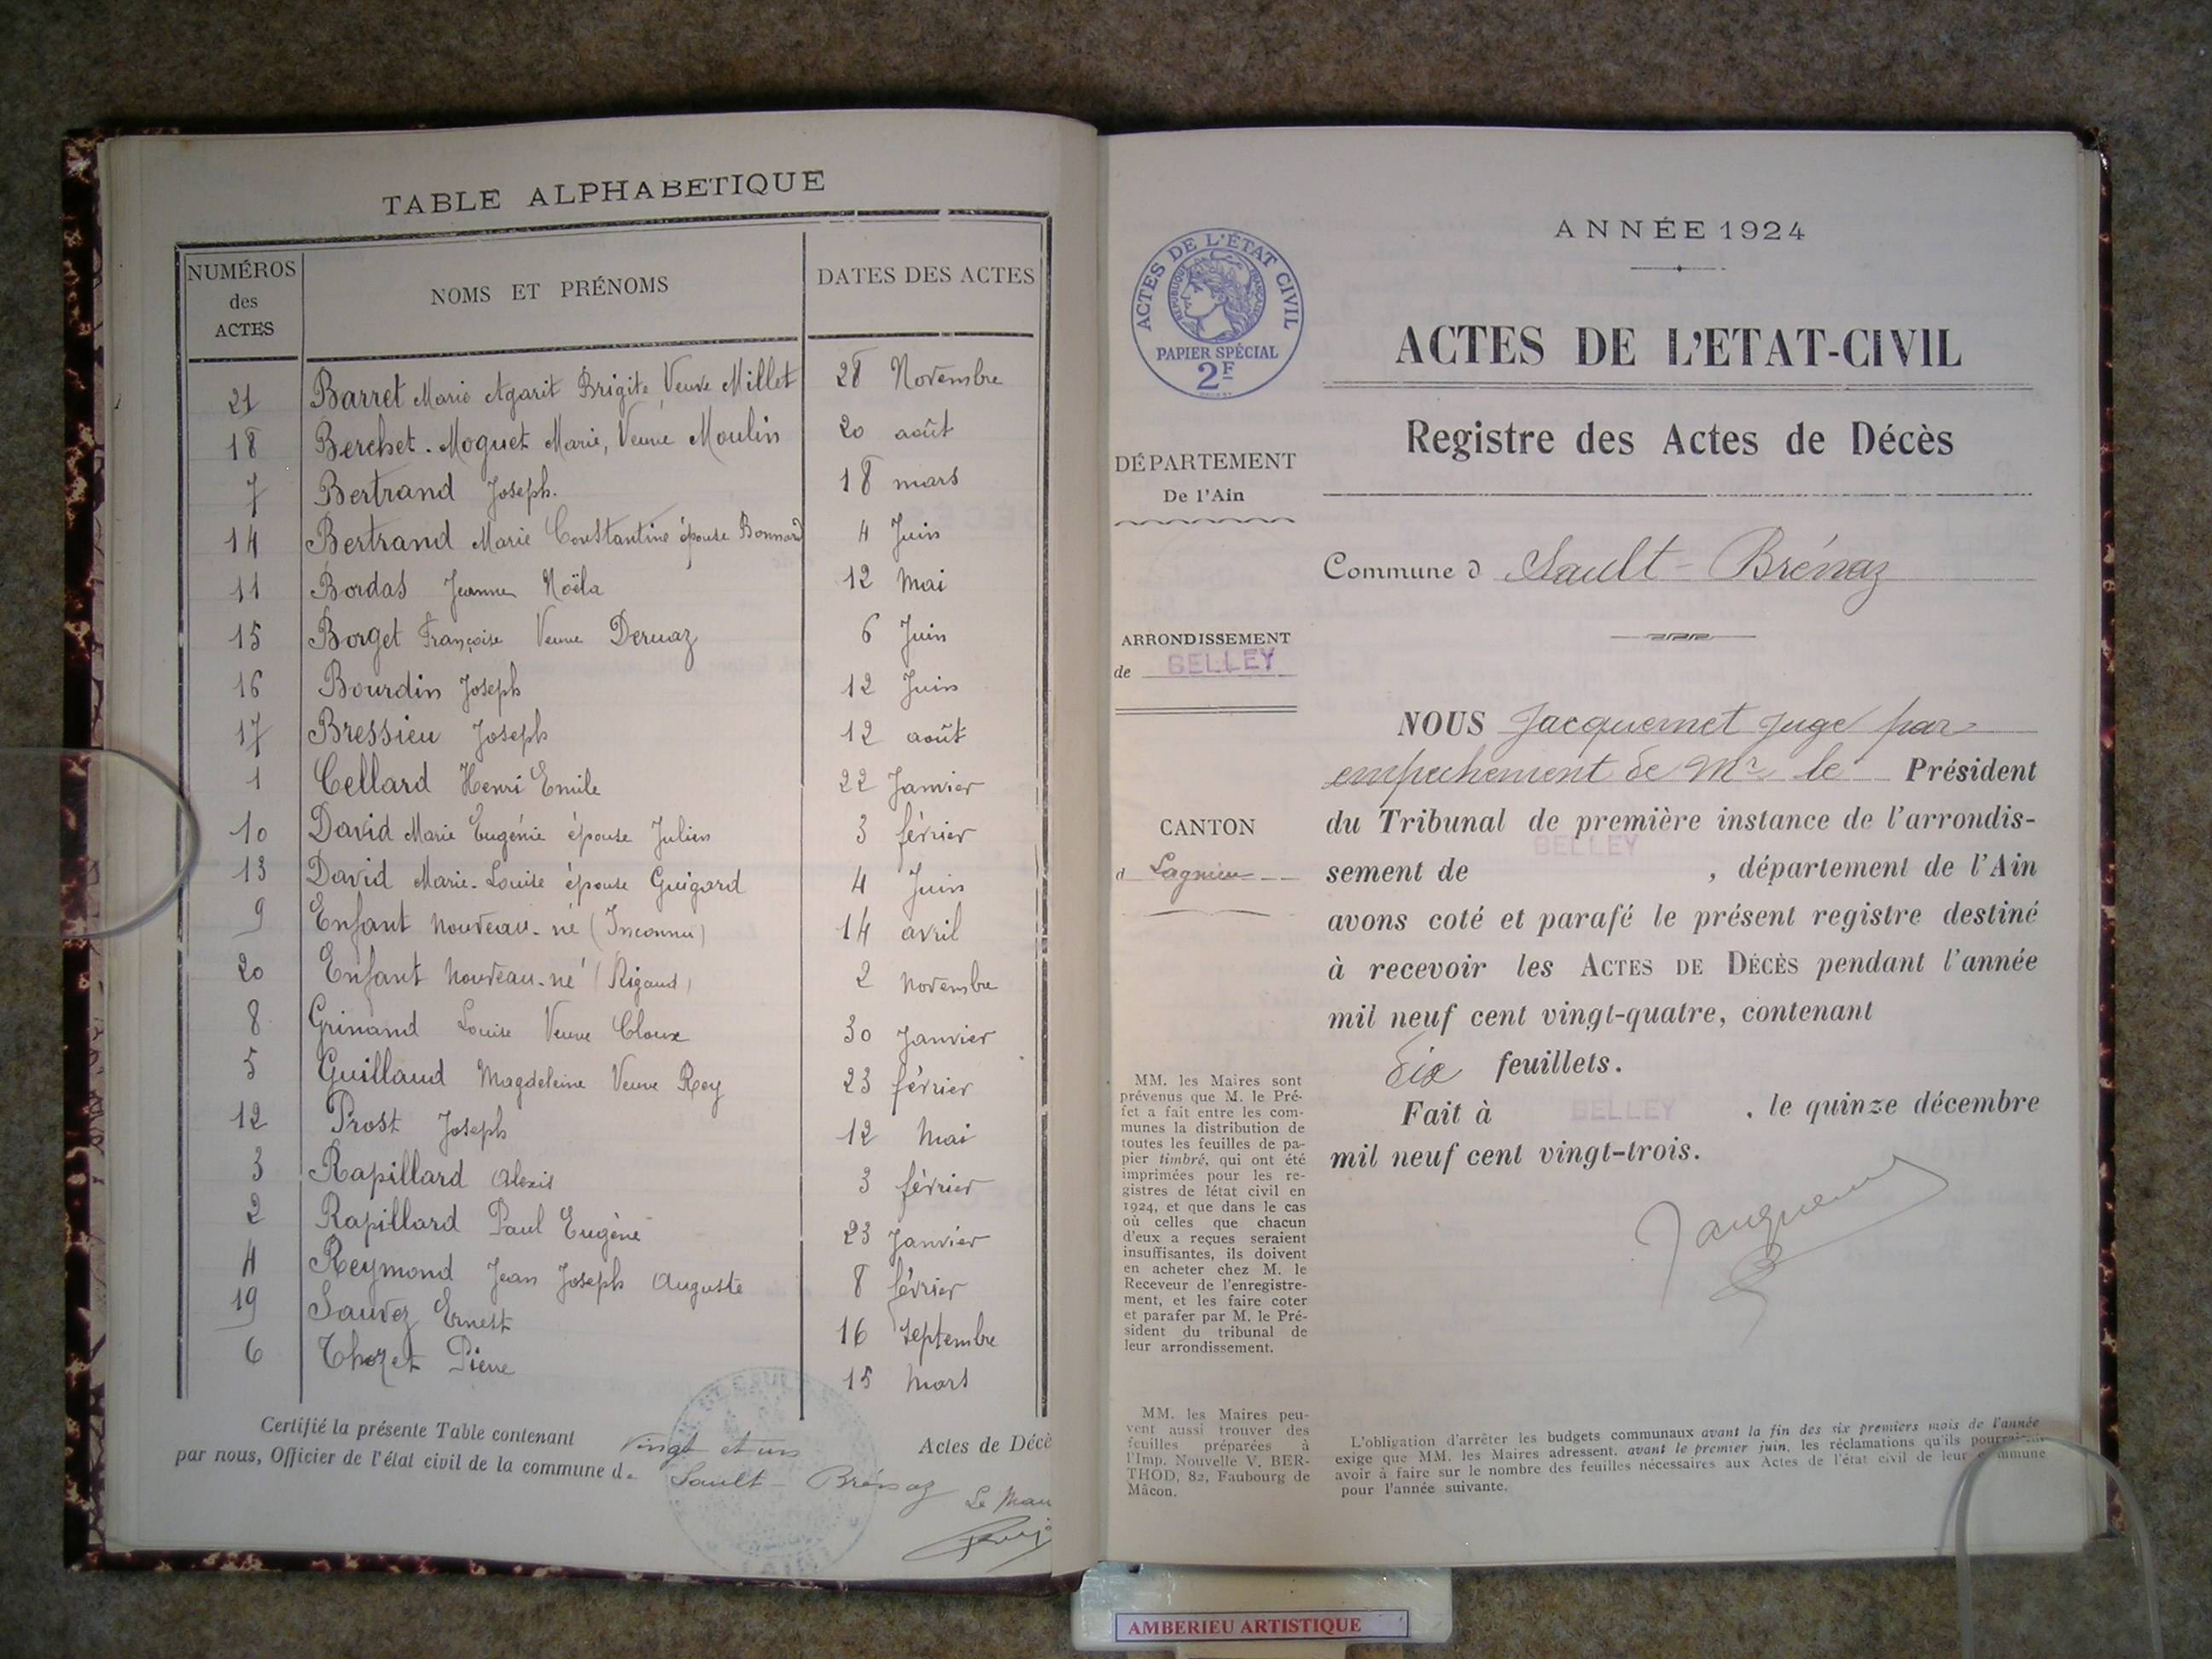 TABLE ALPHABETIQUE
NUMÉROS des ACTES
NOMS ET PRÉNOMS
DATES DES ACTES
21 Barret Marie Agarit Brigite, Veuve Millet 28 Novembre
18 Berchet-Moquet Marie, Veuve Moulin 20 août
7 Bertrand Joseph. 18 mars
14 Bertrand Marie Constantine épouse Bonnard 4 Juin
11 Bordas Jeanne Noëla 12 Mai
15 Borget Françoise Veuve Dervaz 6 Juin
16 Bourdin Joseph 12 Juin
17 Bressieu Joseph 12 août
1 Cellard Henri Emile 22 Janvier
10 David Marie Eugénie épouse Julien 3 février
13 David Marie-Louise épouse Guigard 4 Juin
9 Enfant Nouveau-né (Inconnu) 14 avril
20 Enfant Nouveau-né (Rigaud) 2 Novembre
8 Grinand Louise Veuve Cloux 30 Janvier
5 Guillaud Magdeleine Veuve Rey 23 février
12 Prost Joseph 12 Mai
3 Rapillard Alexis 3 février
2 Rapillard Paul Eugène 23 Janvier
4 Reymond Jean Joseph Auguste 8 février
19 Sauvez Ernest 16 Septembre
6 Thozet Pierre 15 Mars
Certifié la présente Table contenant vingt et un Actes de Décè
par nous, Officier de l'état civil de la commune de Sault-Brénaz
Le Mai
ANNÉE 1924
ACTES DE L'ÉTAT CIVIL
RÉPUBLIQUE FRANÇAISE
PAPIER SPÉCIAL
2F
ACTES DE L'ETAT-CIVIL
Registre des Actes de Décès
DÉPARTEMENT
De l'Ain
Commune d Sault-Brénaz
ARRONDISSEMENT
de BELLEY
CANTON
d Lagnieu
NOUS Jacquemet Juge par
empêchement de Mr le Président
du Tribunal de première instance de l'arrondis-
sement de BELLEY, département de l'Ain
avons coté et parafé le présent registre destiné
à recevoir les ACTES DE DÉCÈS pendant l'année
mil neuf cent vingt-quatre, contenant
Six feuillets.
Fait à BELLEY, le quinze décembre
mil neuf cent vingt-trois.
Jacquemet
MM. les Maires sont
prévenus que M. le Pré-
fet a fait entre les com-
munes la distribution de
toutes les feuilles de pa-
pier timbré, qui ont été
imprimées pour les re-
gistres de létat civil en
1924, et que dans le cas
où celles que chacun
d'eux a reçues seraient
insuffisantes, ils doivent
en acheter chez M. le
Receveur de l'enregistre-
ment, et les faire coter
et parafer par M. le Pré-
sident du tribunal de
leur arrondissement.
MM. les Maires peu-
vent aussi trouver des
feuilles préparées à
l'Imp. Nouvelle V. BER-
THOD, 82, Faubourg de
Mâcon.
L'obligation d'arrêter les budgets communaux avant la fin des six premiers mois de l'année
exige que MM. les Maires adressent, avant le premier juin, les réclamations qu'ils pourraient
avoir à faire sur le nombre des feuilles nécessaires aux Actes de l'état civil de leur commune
pour l'année suivante.
AMBERIEU ARTISTIQUE